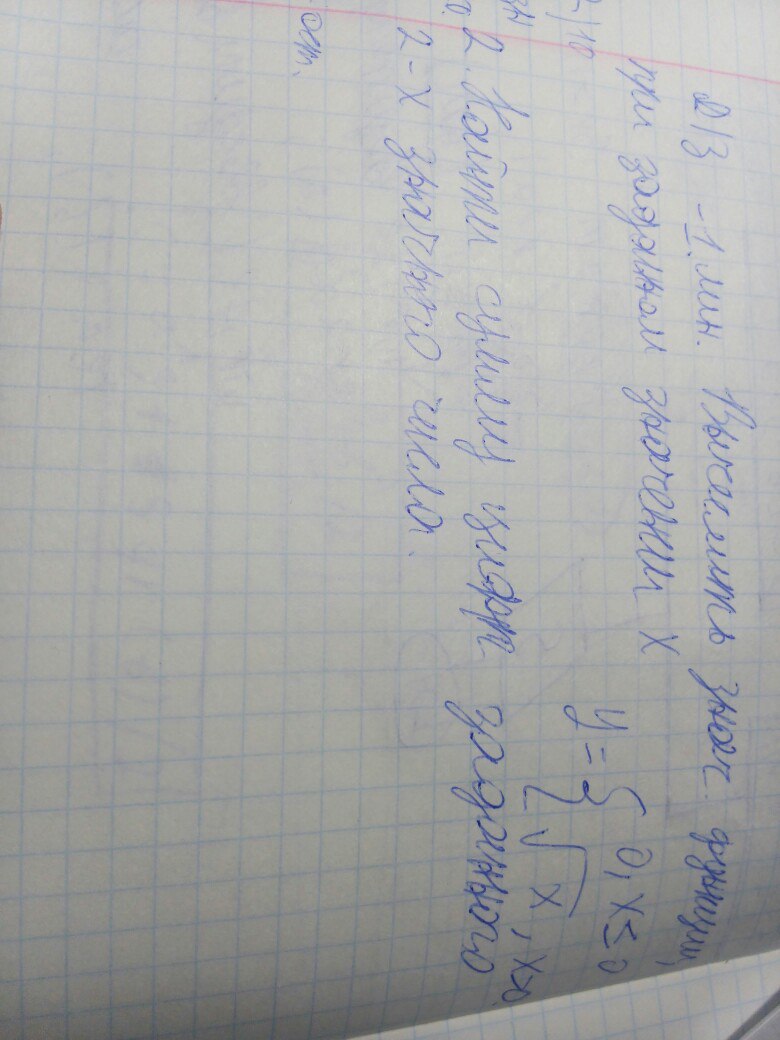 Д/З - 1. мин. Вычислить знач. функции,
при заданном значении х
y = { 0, x ≤ 0
√x, x>0
2. Найти сумму цифр заданного
2-х значного числа.